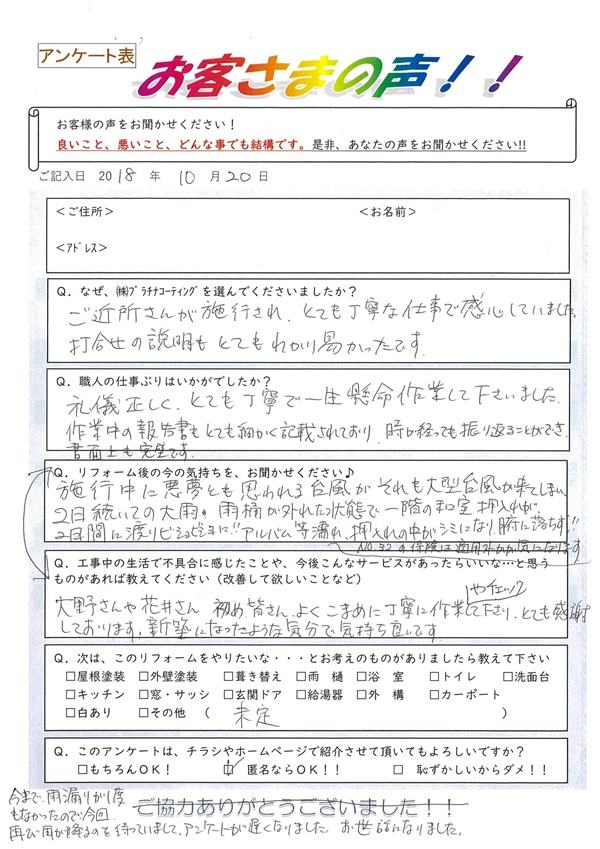 アンケート表
お客さまの声！！
お客様の声をお聞かせください！
良いこと、悪いこと、どんな事でも結構です。是非、あなたの声をお聞かせください!!
ご記入日 2018 年 10 月 20 日
<ご住所> <お名前>
<ｱﾄﾞﾚｽ>
Q．なぜ、㈱ﾌﾟﾗﾁﾅｺｰﾃｨﾝｸﾞを選んでくださいましたか？
ご近所さんが施行され、とても丁寧な仕事で感心していました。
打合せの説明もとてもわかり易かったです。
Q．職人の仕事ぶりはいかがでしたか？
礼儀正しく、とても丁寧で一生懸命作業して下さいました。
作業中の報告書もとても細かく記載されており、時が経っても振り返ることができ、
書面上も完璧です。
Q．リフォーム後の今の気持ちを、お聞かせください♪
施行中に悪夢とも思われる台風が それも大型台風が来てしまい
2日続いての大雨。雨樋が外れた状態で一階の和室 押入れが、
2日間に渡りビショビショに!! アルバム等濡れ、押入れの中がシミになり、腑に落ちず!!
No.32の保険は適用外かが気になります
Q．工事中の生活で不具合に感じたことや、今後こんなサービスがあったらいいな…と思う
ものがあれば教えてください（改善して欲しいことなど）
やチェック
大野さんや花井さん 初め皆さん、よくこまめに丁寧に作業して下さり、とても感謝
しております。新築になったような気分で気持ち良いです。
Q．次は、このリフォームをやりたいな・・・とお考えのものがありましたら教えて下さい
□屋根塗装 □外壁塗装 □葺き替え □雨 樋 □浴 室 □トイレ □洗面台
□キッチン □窓・サッシ □玄関ドア □給湯器 □外 構 □カーポート
□白あり □その他 （ 未定 ）
Q．このアンケートは、チラシやホームページで紹介させて頂いてもよろしいですか？
□もちろんOK！ ☑ 匿名ならOK！！ □ 恥ずかしいからダメ！！
ご協力ありがとうございました！！
今まで、雨漏りが1度
もなかったので今回、
再び雨が降るのを待っていまして、アンケートが遅くなりました。お世話になりました。